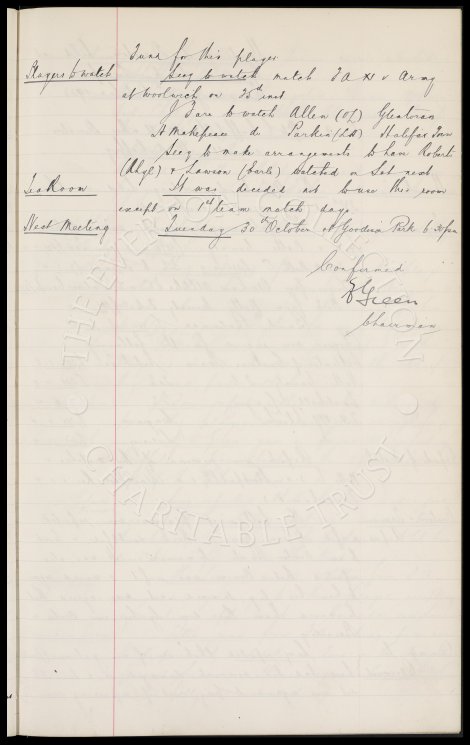 June for this player
Players to watch Secy to watch match F A XI v Army
at Woolwich on 25th inst
J Fare to watch Allen (OL) Glentoran
H Makepeace do Parkin (LH) Halifax Town
Secy to make arrangements to have Roberts
(Rhyl) & Lawson (Earle) watched on Sat next
Tea Room It was decided not to use this room
except on 1st team match days.
Next Meeting Tuesday 30th October at Goodison Park 6.30pm
Confirmed
E Green
Chairman
© THE EVERTON COLLECTION
CHARITABLE TRUST